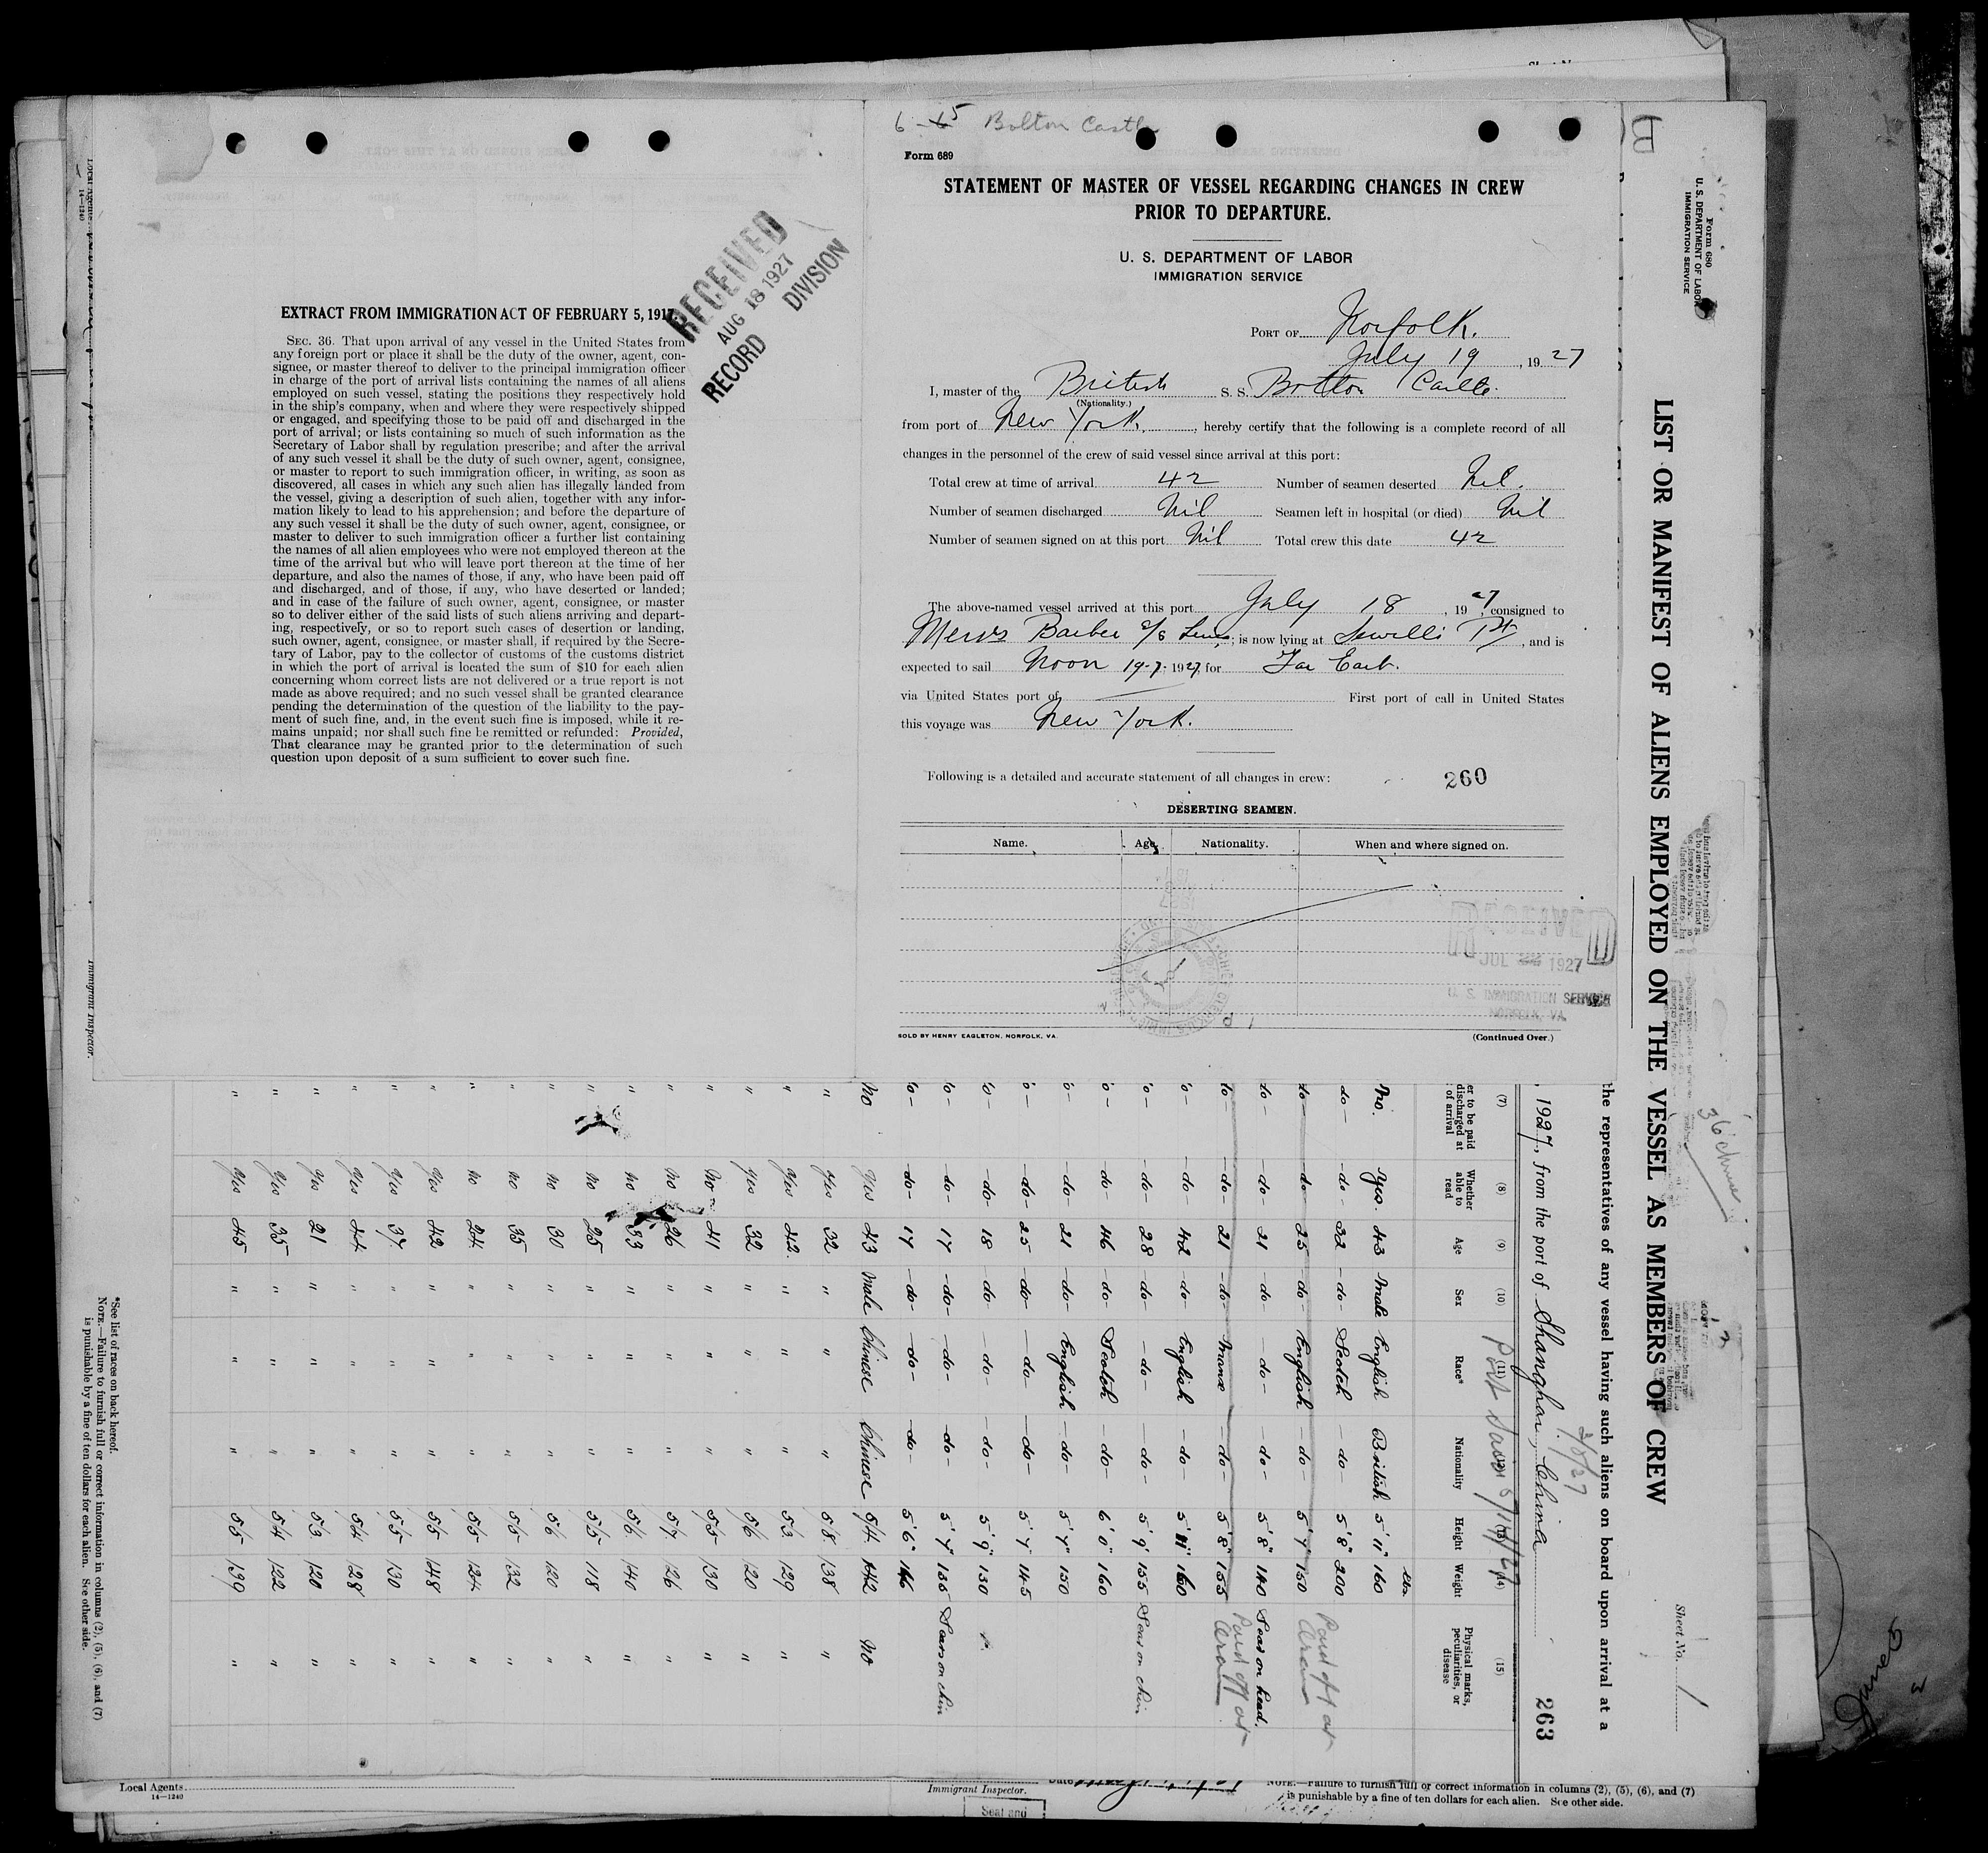 6-5 Bolton Castle
Form 689
STATEMENT OF MASTER OF VESSEL REGARDING CHANGES IN CREW
PRIOR TO DEPARTURE.
U. S. DEPARTMENT OF LABOR
IMMIGRATION SERVICE
PORT OF Norfolk.
July 19, 1927
I, master of the British S. S. Bolton Castle
(Nationality.)
from port of New York, hereby certify that the following is a complete record of all
changes in the personnel of the crew of said vessel since arrival at this port:
Total crew at time of arrival 42 Number of seamen deserted Nil.
Number of seamen discharged Nil Seamen left in hospital (or died) Nil
Number of seamen signed on at this port Nil Total crew this date 42
The above-named vessel arrived at this port July 18, 1927, consigned to
Messrs Barber S/S Lines; is now lying at Sewells Pt, and is
expected to sail Noon 19-7-1927, for Far East.
via United States port of First port of call in United States
this voyage was New York.
Following is a detailed and accurate statement of all changes in crew:
260
DESERTING SEAMEN.
Name. Age. Nationality. When and where signed on.
RECEIVED
JUL 22 1927
U. S. IMMIGRATION SERVICE
NORFOLK, VA.
SOLD BY HENRY EAGLETON, NORFOLK, VA.
(Continued Over.)
RECEIVED
AUG 18 1927
RECORD DIVISION
EXTRACT FROM IMMIGRATION ACT OF FEBRUARY 5, 1917.
SEC. 36. That upon arrival of any vessel in the United States from
any foreign port or place it shall be the duty of the owner, agent, con-
signee, or master thereof to deliver to the principal immigration officer
in charge of the port of arrival lists containing the names of all aliens
employed on such vessel, stating the positions they respectively hold
in the ship's company, when and where they were respectively shipped
or engaged, and specifying those to be paid off and discharged in the
port of arrival; or lists containing so much of such information as the
Secretary of Labor shall by regulation prescribe; and after the arrival
of any such vessel it shall be the duty of such owner, agent, consignee,
or master to report to such immigration officer, in writing, as soon as
discovered, all cases in which any such alien has illegally landed from
the vessel, giving a description of such alien, together with any infor-
mation likely to lead to his apprehension; and before the departure of
any such vessel it shall be the duty of such owner, agent, consignee, or
master to deliver to such immigration officer a further list containing
the names of all alien employees who were not employed thereon at the
time of the arrival but who will leave port thereon at the time of her
departure, and also the names of those, if any, who have been paid off
and discharged, and of those, if any, who have deserted or landed;
and in case of the failure of such owner, agent, consignee, or master
so to deliver either of the said lists of such aliens arriving and depart-
ing, respectively, or so to report such cases of desertion or landing,
such owner, agent, consignee, or master shall, if required by the Secre-
tary of Labor, pay to the collector of customs of the customs district
in which the port of arrival is located the sum of $10 for each alien
concerning whom correct lists are not delivered or a true report is not
made as above required; and no such vessel shall be granted clearance
pending the determination of the question of the liability to the pay-
ment of such fine, and, in the event such fine is imposed, while it re-
mains unpaid; nor shall such fine be remitted or refunded: Provided,
That clearance may be granted prior to the determination of such
question upon deposit of a sum sufficient to cover such fine.
Form 680
U. S. DEPARTMENT OF LABOR
IMMIGRATION SERVICE
Sheet No. 1
LIST OR MANIFEST OF ALIENS EMPLOYED ON THE VESSEL AS MEMBERS OF CREW
the representatives of any vessel having such aliens on board upon arrival at a
, 1927, from the port of Shanghai, China
263
(7) (8) (9) (10) (11) (13) (14) (15)
er to be paid discharged at of arrival Whether able to read Age Sex Race* Nationality Height Weight Physical marks, peculiarities, or disease
lbs.
No. Yes. 43 Male English British 5'11" 160
do- -do- 32 -do- Scotch -do- 5'8" 200
to- -do- 25 -do- English -do- 5'7" 150 Paid off at
to- -do- 21 -do- -do- -do- 5'8" 140 Scar on head.
to- -do- 21 -do- -do- 5'8" 155 Paid off at
o- -do- 42 -do- English -do- 5'11" 160
o- -do- 28 -do- -do- -do- 5'9" 155 Scar on chin
o- -do- 46 -do- Scotch -do- 6'0" 160
o- -do- 21 -do- English -do- 5'7" 150
o- -do- 25 -do- -do- -do- 5'7" 145
to- -do- 18 -do- -do- -do- 5'9" 150
to- -do- 17 -do- -do- -do- 5'7" 135 Scar on chin
to- -do- 17 -do- -do- -do- 5'6" 146
No Yes 43 Male Chinese Chinese 5/4. 142 No
" Yes 32 " " " 5/8. 138 "
" Yes 42. " " " 5/3. 129 "
" Yes 32 " " " 5/6 120 "
" No 41 " " " 5/5 130 "
" No 26 " " " 5/7. 126 "
" No 33 " " " 5/6. 140 "
" No 25 " " " 5/5 118 "
" No 30 " " " 5/6 120 "
" No 35 " " " 5/5 132 "
" No 24 " " " 5/5 124 "
" Yes 42 " " " 5/5 148 "
" Yes 37. " " " 5/5 130 "
" Yes 44 " " " 5/4 128 "
" Yes 21 " " " 5/3. 120 "
" Yes 35 " " " 5/4 122 "
" Yes 45 " " " 5/5 139 "
*See list of races on back hereof.
NOTE.—Failure to furnish full or correct information in columns (2), (5), (6), and (7)
is punishable by a fine of ten dollars for each alien. See other side.
Immigrant Inspector.
Local Agents
14—1240
Local Agents
14—1240
Immigrant Inspector.
NOTE.—Failure to furnish full or correct information in columns (2), (5), (6), and (7)
is punishable by a fine of ten dollars for each alien. See other side.
Seal and